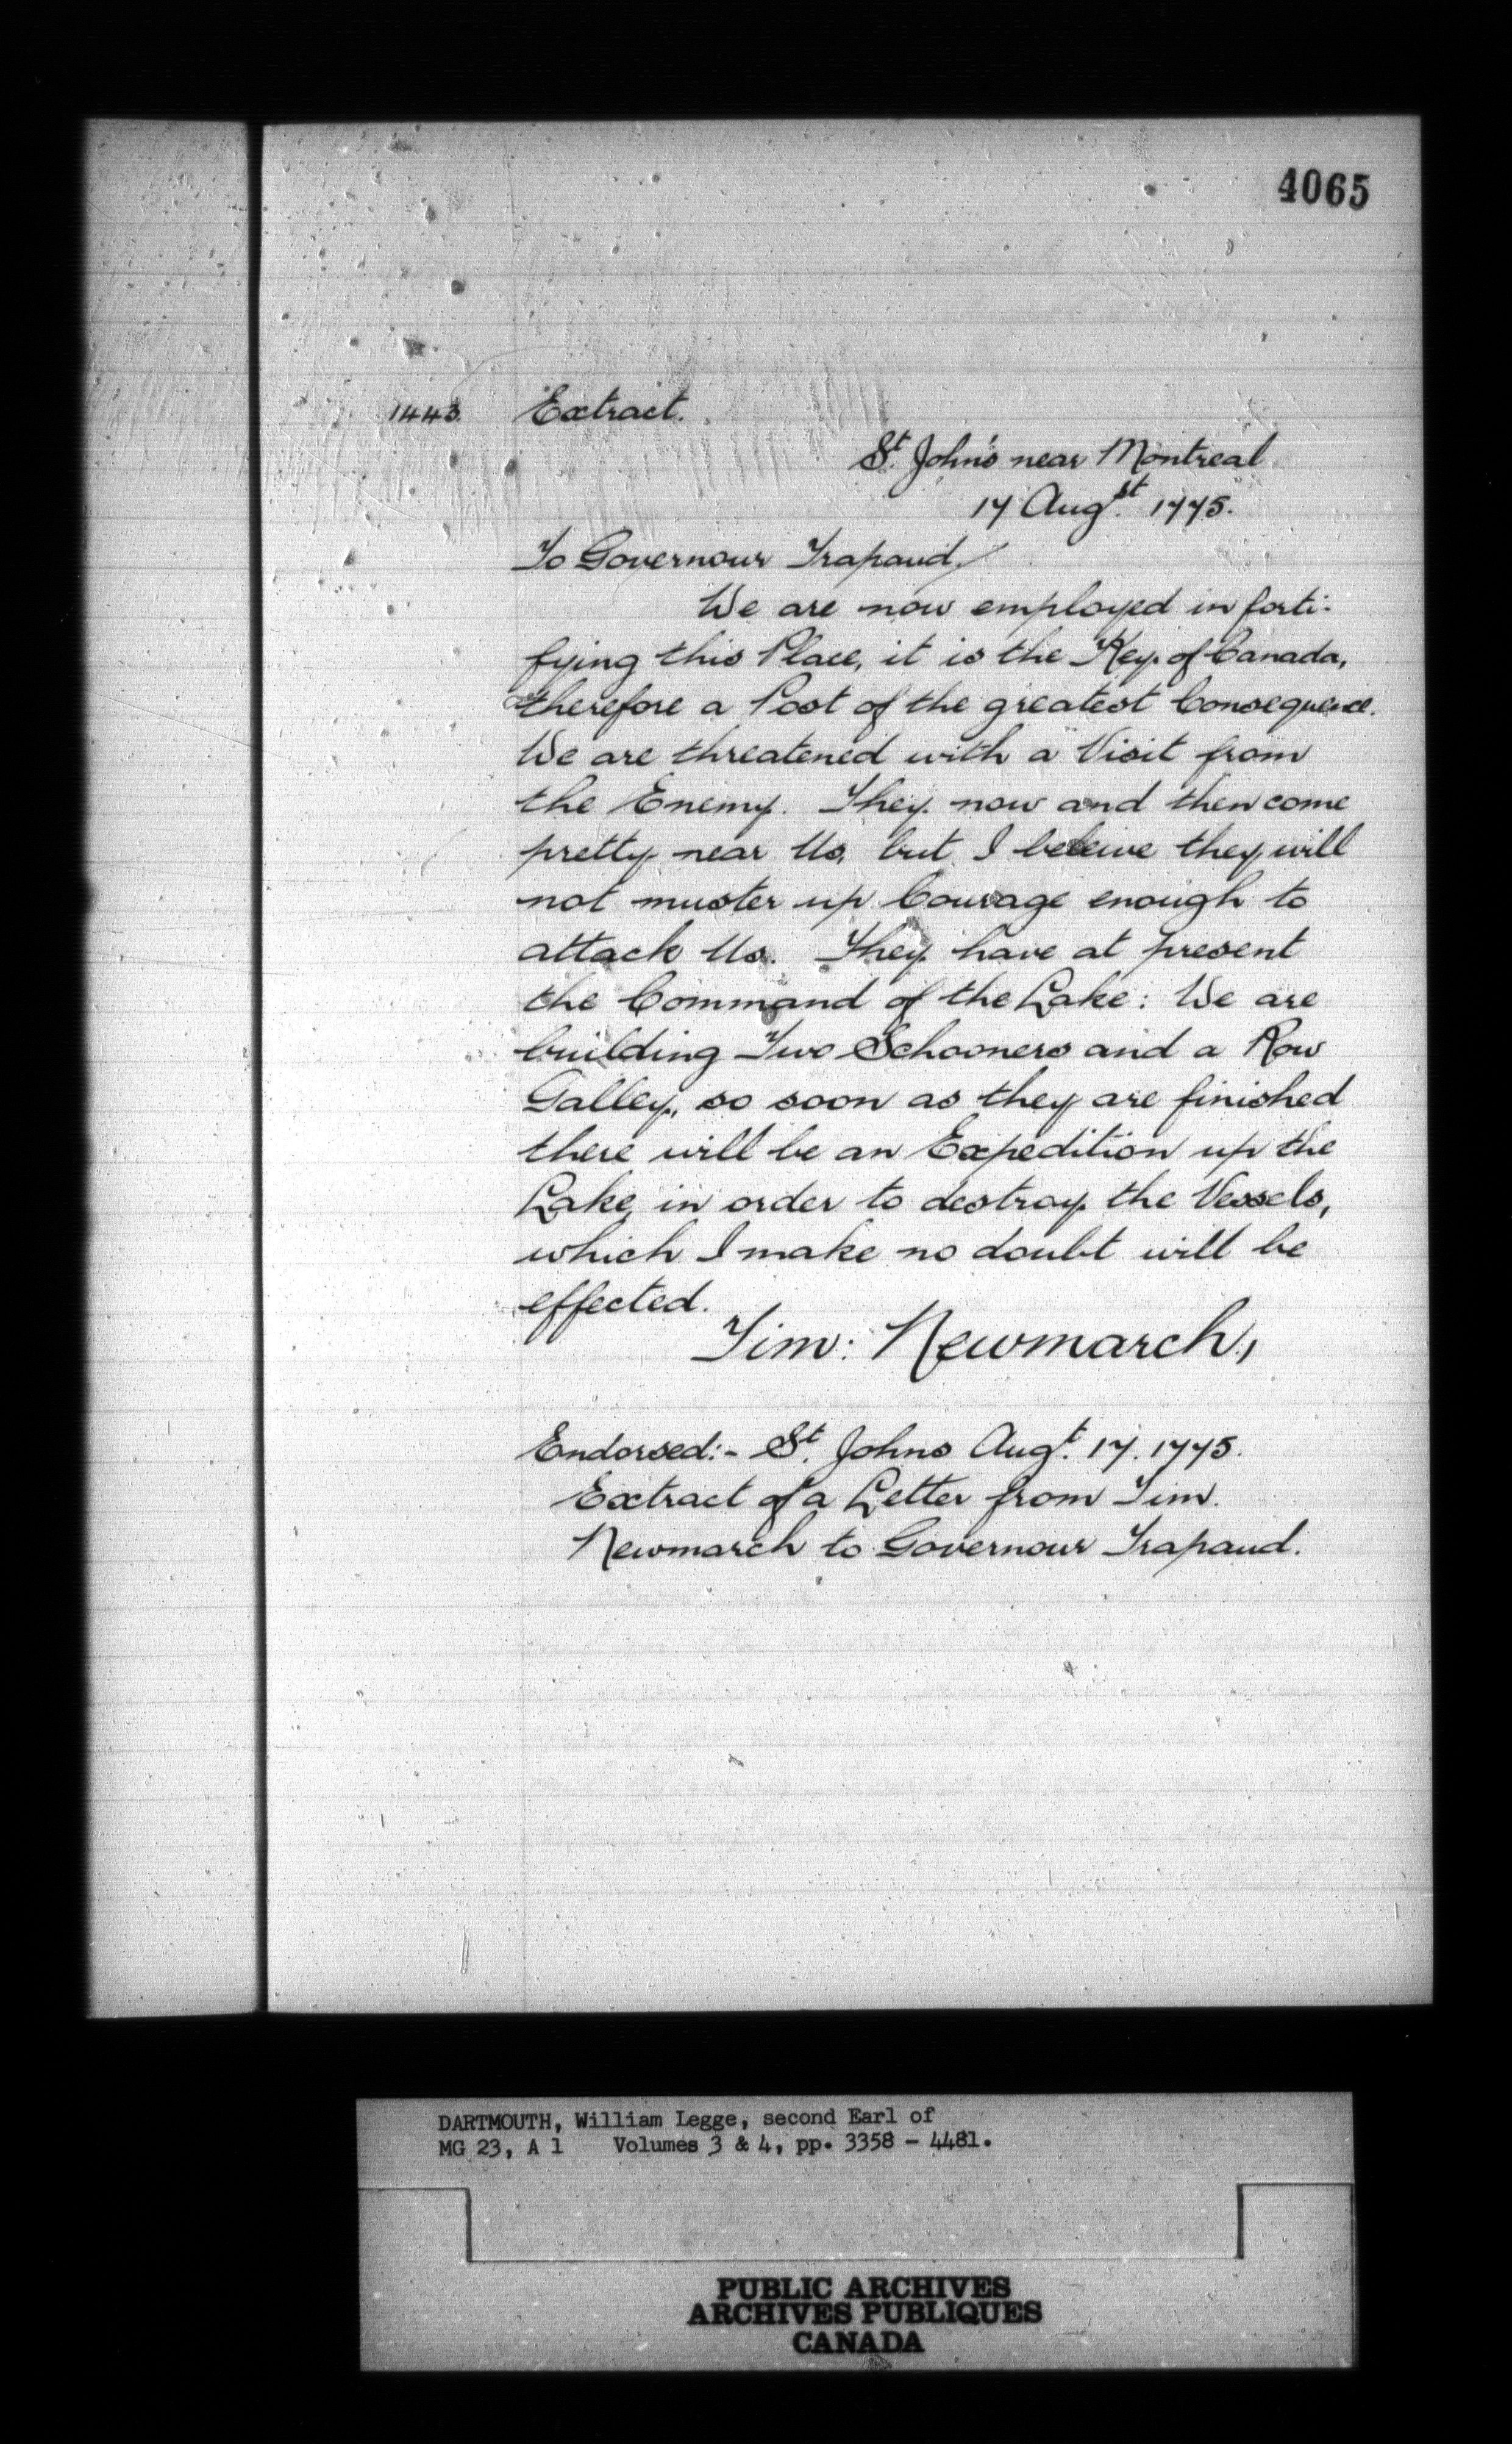 4065
1443. Extract.
St. John's near Montreal
17 Augst. 1775.
To Governour Trapaud/
We are now employed in forti-
fying this Place, it is the Key of Canada,
therefore a Post of the greatest Consequence.
We are threatened with a Visit from
the Enemy. They now and then come
pretty near Us, but I beleive they will
not muster up Courage enough to
attack Us. They have at present
the Command of the Lake: We are
building Two Schooners and a Row
Galley, so soon as they are finished
there will be an Expedition up the
Lake, in order to destroy the Vessels,
which I make no doubt will be
effected.
Tim: Newmarch,
Endorsed:- St. Johns Augt. 17. 1775.
Extract of a Letter from Tim.
Newmarch to Governour Trapaud.
DARTMOUTH, William Legge, second Earl of
MG 23, A 1 Volumes 3 & 4, pp. 3358 - 4481.
PUBLIC ARCHIVES
ARCHIVES PUBLIQUES
CANADA